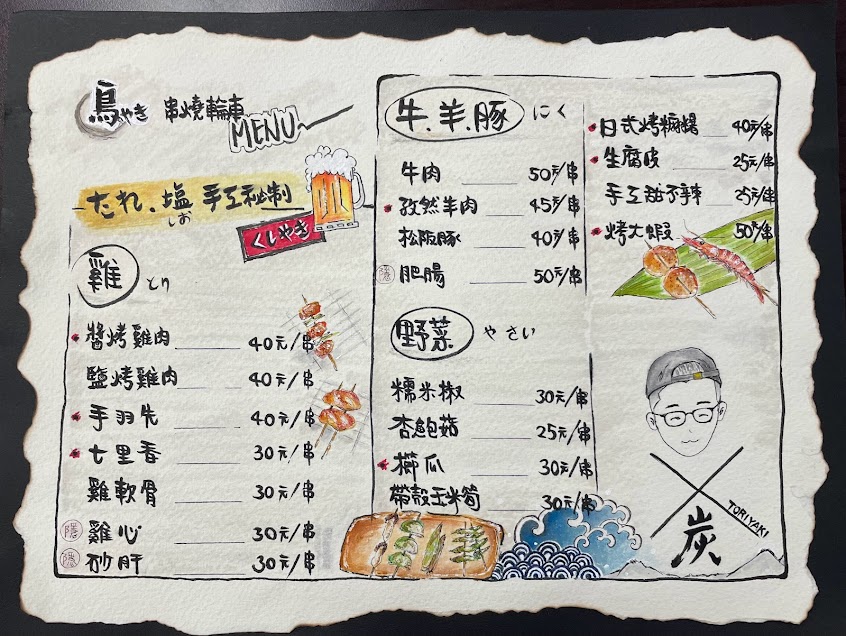 鳥やき 串燒輪車
MENU
たれ、塩 手工祕制
しお
くしやき
雞 とり
醬烤雞肉 40元/串
鹽烤雞肉 40元/串
手羽先 40元/串
七里香 30元/串
雞軟骨 30元/串
隱 雞心 30元/串
隱 砂肝 30元/串
牛、羊、豚 にく
牛肉 50元/串
孜然羊肉 45元/串
松阪豚 40元/串
隱 肥腸 50元/串
野菜 やさい
糯米椒 30元/串
杏鮑菇 25元/串
櫛瓜 30元/串
帶殼玉米筍 30元/串
日式烤麻糬 40元/串
生腐皮 25元/串
手工甜不辣 25元/串
烤大蝦 50元/串
TORIYAKI
炭